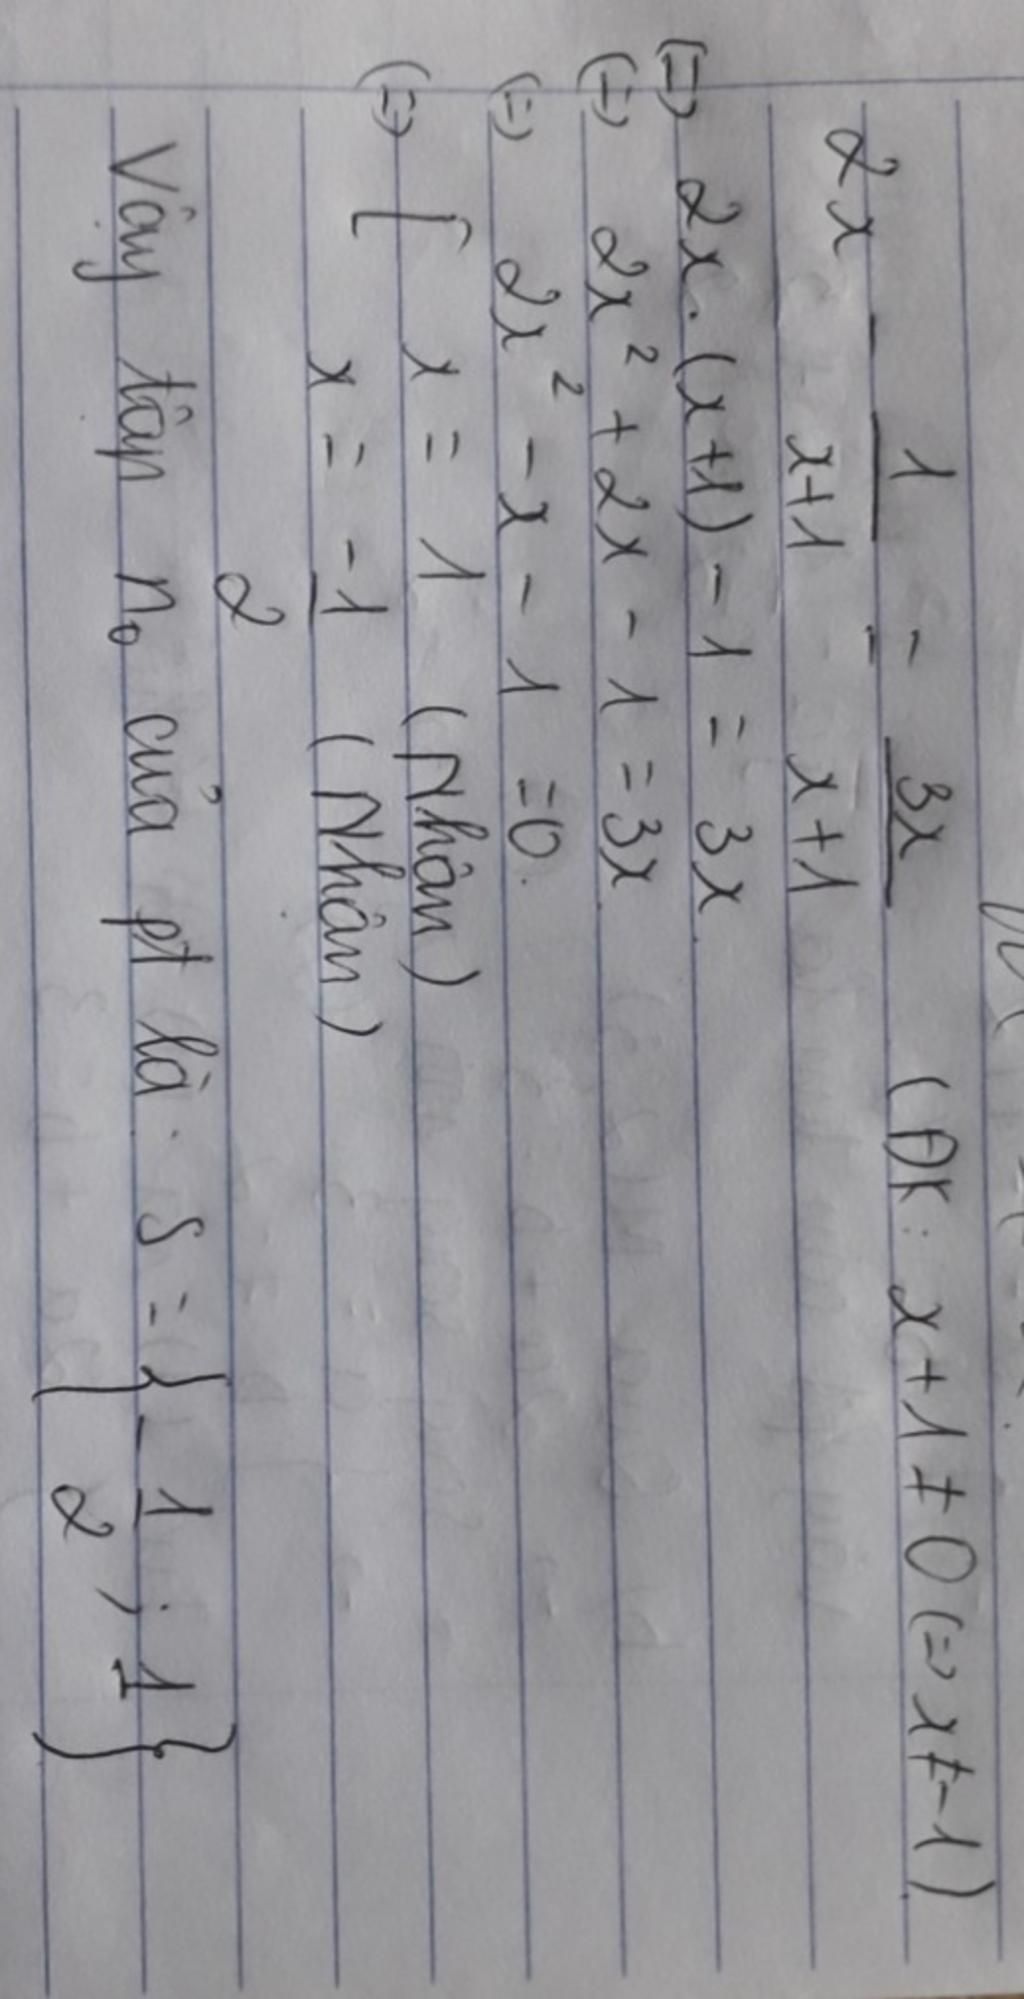 2x - 1/(x+1) = 3x/(x+1) (ĐK: x+1 ≠ 0 (=) x ≠ -1)
(=) 2x.(x+1) - 1 = 3x
(=) 2x² + 2x - 1 = 3x
(=) 2x² - x - 1 = 0.
(=) [ x = 1 (Nhận)
x = -1/2 (Nhận)
Vậy tập n₀ của pt là: S = {-1/2; 1}